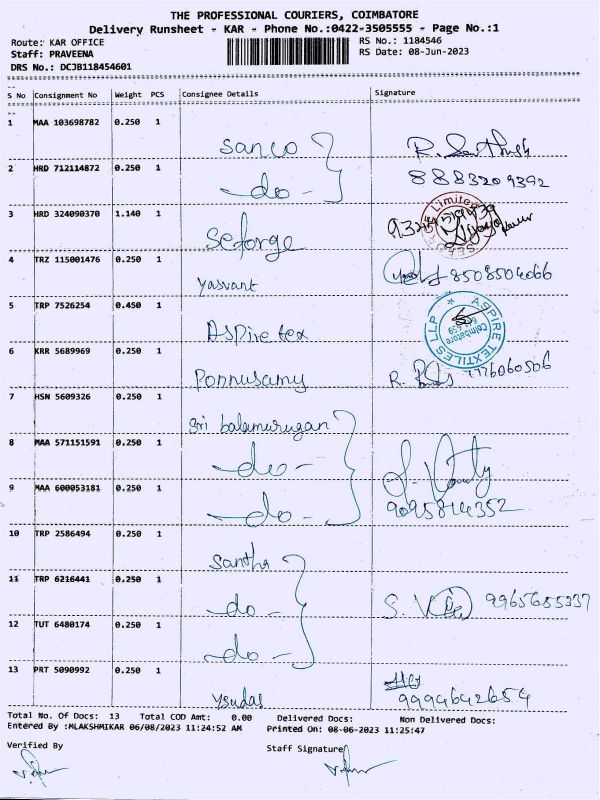 THE PROFESSIONAL COURIERS, COIMBATORE
Delivery Runsheet - KAR - Phone No.:0422-3505555 - Page No.:1
Route: KAR OFFICE RS No.: 1184546
Staff: PRAVEENA RS Date: 08-Jun-2023
DRS No.: DCJB118454601
S No Consignment No Weight PCS Consignee Details Signature
1 MAA 103698782 0.250 1
sanco
2 HRD 712114872 0.250 1 8883209392
-do-
3 HRD 324090370 1.140 1
Seforge
4 TRZ 115001476 0.250 1 8508504066
Yasvant
5 TRP 7526254 0.450 1 ASPIRE TEXTILES LLP Coimbatore
Aspire tex
6 KRR 5689969 0.250 1
Ponnusamy
7 HSN 5609326 0.250 1
Sri balamurugan
8 MAA 571151591 0.250 1
-do-
9 MAA 600053181 0.250 1
-do- 9095814352
10 TRP 2586494 0.250 1
santha
11 TRP 6216441 0.250 1
-do- 9965655337
12 TUT 6480174 0.250 1
-do-
13 PRT 5090992 0.250 1
Ysudas 9994642654
Total No. Of Docs: 13 Total COD Amt: 0.00 Delivered Docs: Non Delivered Docs:
Entered By :MLAKSHMIKAR 06/08/2023 11:24:52 AM Printed On: 08-06-2023 11:25:47
Verified By Staff Signature